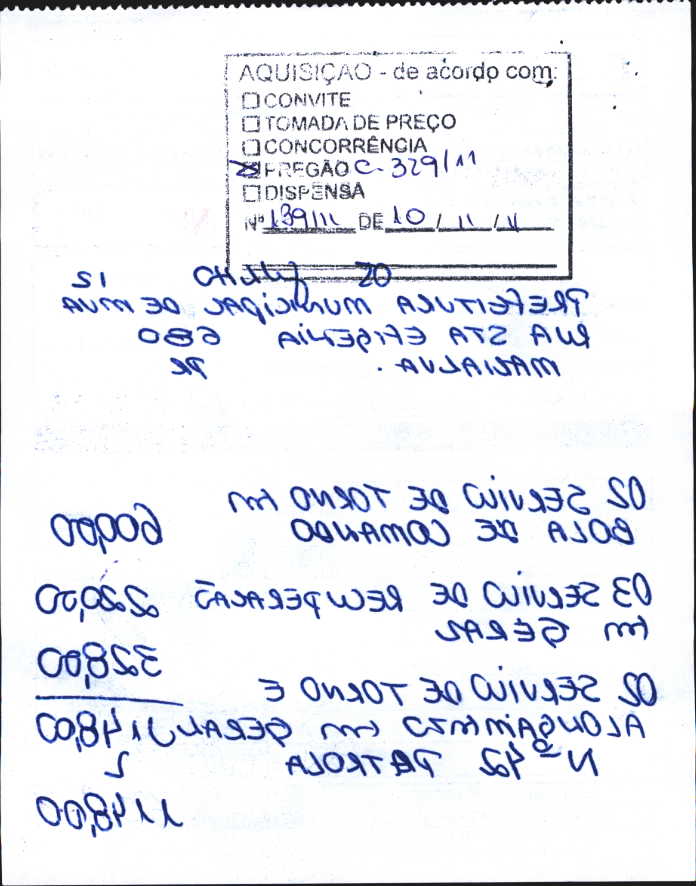 AQUISIÇÃO - de acordo com:
CONVITE
TOMADA DE PREÇO
CONCORRÊNCIA
PREGÃO C-329/11
DISPENSA
Nº 139/11 DE 10/11/11
05 JULHO 12
PREFEITURA MUNICIPAL DE MVA
RUA STA EFIGENIA 680
MARIALVA. PR
02 SERVIÇO DE TORNO EM
BOLA DE COMANDO 600,00
03 SERVIÇO DE RECUPERACÃO 220,00
EM GERAL
328,00
02 SERVIÇO DE TORNO E
ALONGAMENTO EM GERAL 1148,00
Nº 42 PATROLA
1148,00